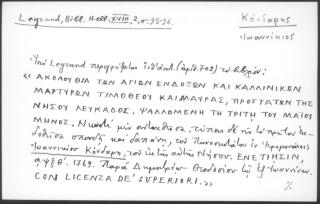 Legrand, Bibl. Hell. XVIII, 2, σ. 95-96.
Κόνδαρης
Ἰωαννίκιος
Ὑπὸ Legrand περιγράφεται (ἀριθ. 703) τὸ βιβλίον:
« ΑΚΟΛΟΥΘΙΑ ΤΩΝ ΑΓΙΩΝ ΕΝΔΟΞΩΝ ΚΑΙ ΚΑΛΛΙΝΙΚΩΝ
ΜΑΡΤΥΡΩΝ ΤΙΜΟΘΕΟΥ ΚΑΙ ΜΑΥΡΑΣ, ΠΡΟΣΤΑΤΩΝ ΤΗΣ
ΝΗΣΟΥ ΛΕΥΚΑΔΟΣ. ΨΑΛΛΟΜΕΝΗ ΤΗ ΤΡΙΤΗ ΤΟΥ ΜΑΪΟΥ
ΜΗΝΟΣ. τύποις δὲ τὸ πρῶτον
σπουδῇ καὶ δαπάνῃ, τοῦ Πανοσιωτάτου ἐν Ἱερομονάχοις
Ἰωαννικίου Κόνδαρη, τοῦ ἐκ τῆς αὐτῆς Νήσου. ΕΝΕΤΙΗΣΙΝ,
αψξθ'. 1769. Παρὰ Δημητρίῳ Θεοδοσίου τῷ ἐξ Ἰωαννίνων.
CON LICENZA DE' SUPERIORI. »